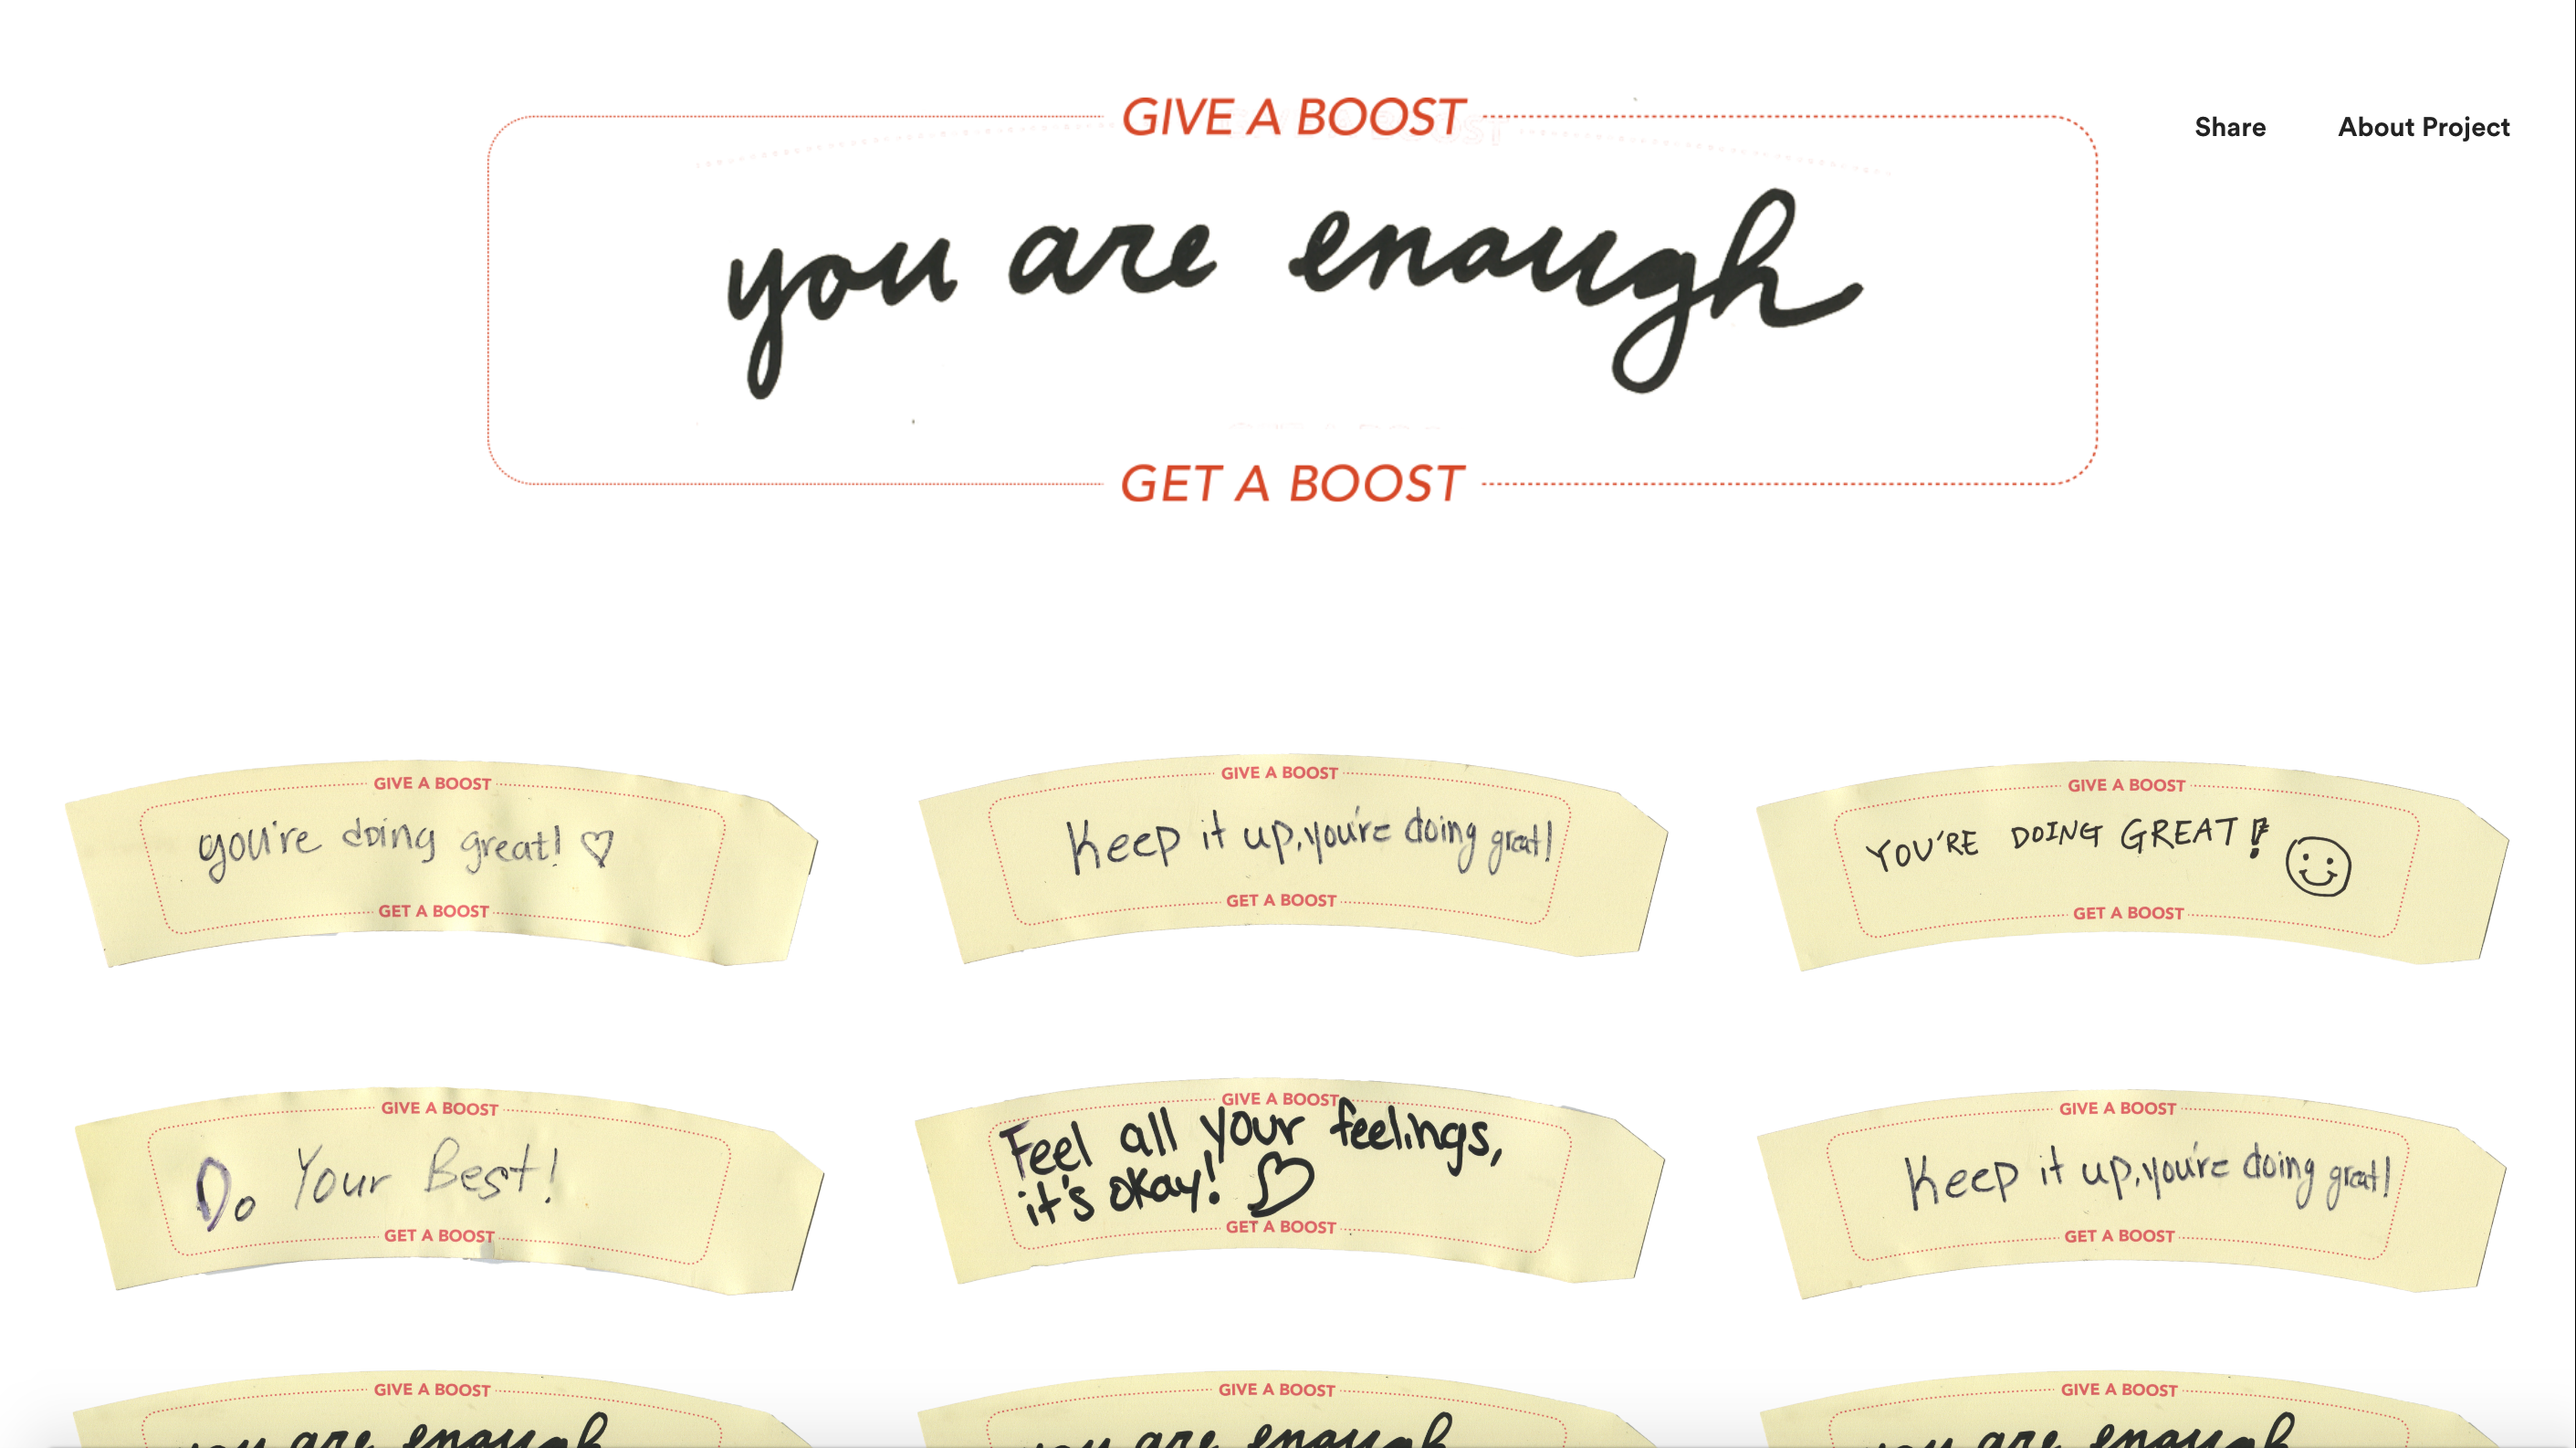 GIVE A BOOST
Share About Project
you are enough
GET A BOOST
GIVE A BOOST
you're doing great! ♡
GET A BOOST
GIVE A BOOST
Keep it up, you're doing great!
GET A BOOST
GIVE A BOOST
YOU'RE DOING GREAT!
GET A BOOST
GIVE A BOOST
Do Your Best!
GET A BOOST
GIVE A BOOST
Feel all your feelings,
it's okay! ♡
GET A BOOST
GIVE A BOOST
Keep it up, you're doing great!
GET A BOOST
GIVE A BOOST
you are enough
GIVE A BOOST
you are enough
GIVE A BOOST
you are enough